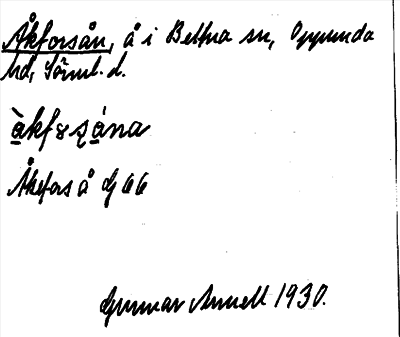 Åkforsån, å i Bettna sn, Oppunda
hd, Sörml. d.
àkfɞʂána
Åkefors å Gj 66
Gunnar Annell 1930.